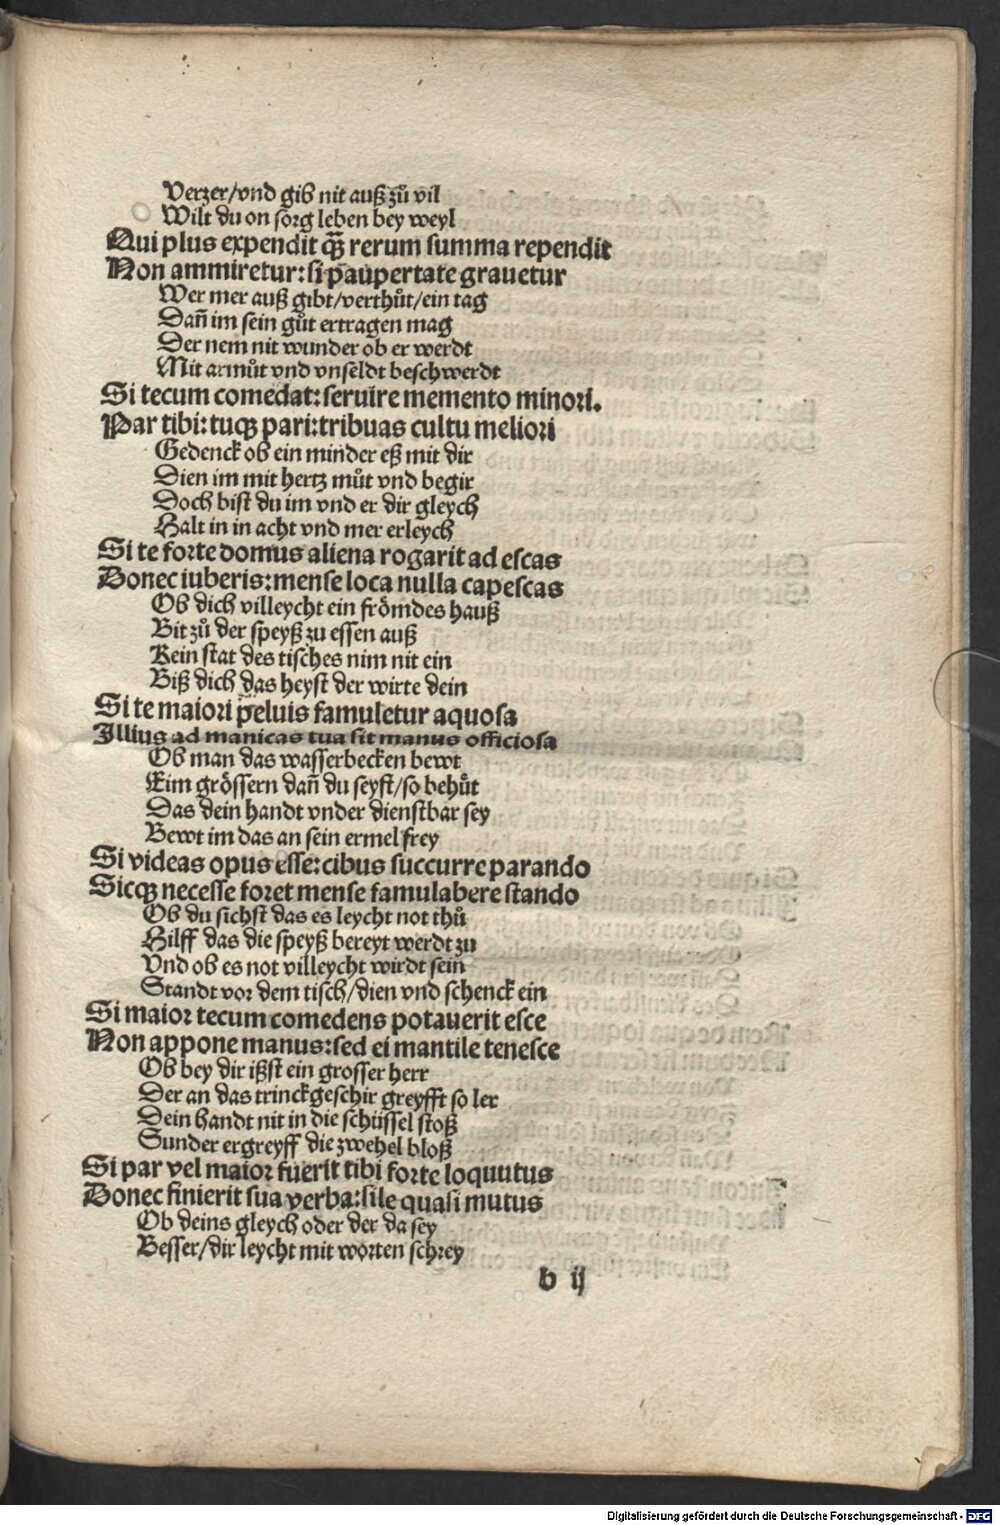 Verzer/vnd gib nit auß zů vil
Wilt du on sorg leben bey weyl
Qui plus expendit qᷓ rerum summa rependit
Non ammiretur: si paupertate grauetur
Wer mer auß gibt/verthůt/ein tag
Dañ im sein gůt ertragen mag
Der nem nit wunder ob er werdt
Mit armůt vnd vnseldt beschwerdt
Si tecum comedat: seruire memento minori.
Par tibi: tuqꝫ pari: tribuas cultu meliori
Gedenck ob ein minder eß mit dir
Dien im mit hertz můt vnd begir
Doch bist du im vnd er dir gleych
Halt in in acht vnd mer erleych
Si te forte domus aliena rogarit ad escas
Donec iuberis: mense loca nulla capescas
Ob dich villeycht ein frömdes hauß
Bit zů der speyß zu essen auß
Kein stat des tisches nim nit ein
Biß dich das heyst der wirte dein
Si te maiori p̄eluis famuletur aquosa
Illius ad manicas tua sit manus officiosa
Ob man das wasserbecken bewt
Eim grössern dañ du seyst/so behůt
Das dein handt vnder dienstbar sey
Bewt im das an sein ermel frey
Si videas opus esse: cibus succurre parando
Sicqꝫ necesse foret mense famulabere stando
Ob du sichst das es leycht not thů
Hilff das die speyß bereyt werdt zu
Vnd ob es not villeycht wirdt sein
Standt vor dem tisch/dien vnd schenck ein
Si maior tecum comedens potauerit esce
Non appone manus: sed ei mantile tenesce
Ob bey dir ißst ein grosser herr
Der an das trinckgeschir greyfft so ler
Dein handt nit in die schüssel stoß
Sunder ergreyff die zwehel bloß
Si par vel maior fuerit tibi forte loquutus
Donec finierit sua verba: sile quasi mutus
Ob deins gleych oder der da sey
Besser/dir leycht mit worten schrey
b ij
Digitalisierung gefördert durch die Deutsche Forschungsgemeinschaft - DFG